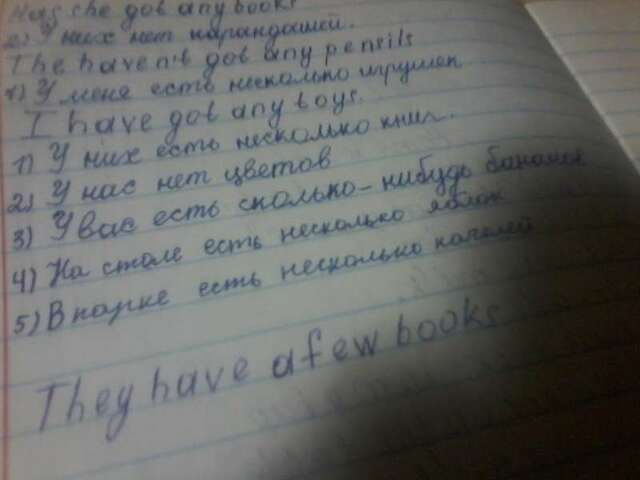 Has she got any books
2) У них нет карандашей.
The haven't got any pencils
1) У меня есть несколько игрушек
I have got any toys.
1) У них есть несколько книг.
2) У нас нет цветов
3) У вас есть сколько-нибудь бананов
4) На столе есть несколько яблок
5) В парке есть несколько качелей
They have a few books